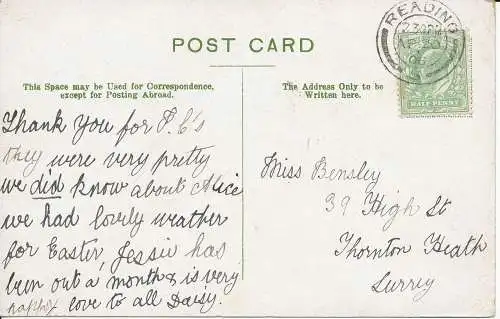 POST CARD
READING
This Space may be Used for Correspondence,
except for Posting Abroad.
The Address Only to be
Written here.
HALF PENNY
Thank You for P.C's
they were very pretty
we did know about Alice
we had lovely weather
for Easter, Jessie has
been out a month & is very
happy love to all Daisy.
Miss Bensley
39 High St
Thornton Heath
Surrey